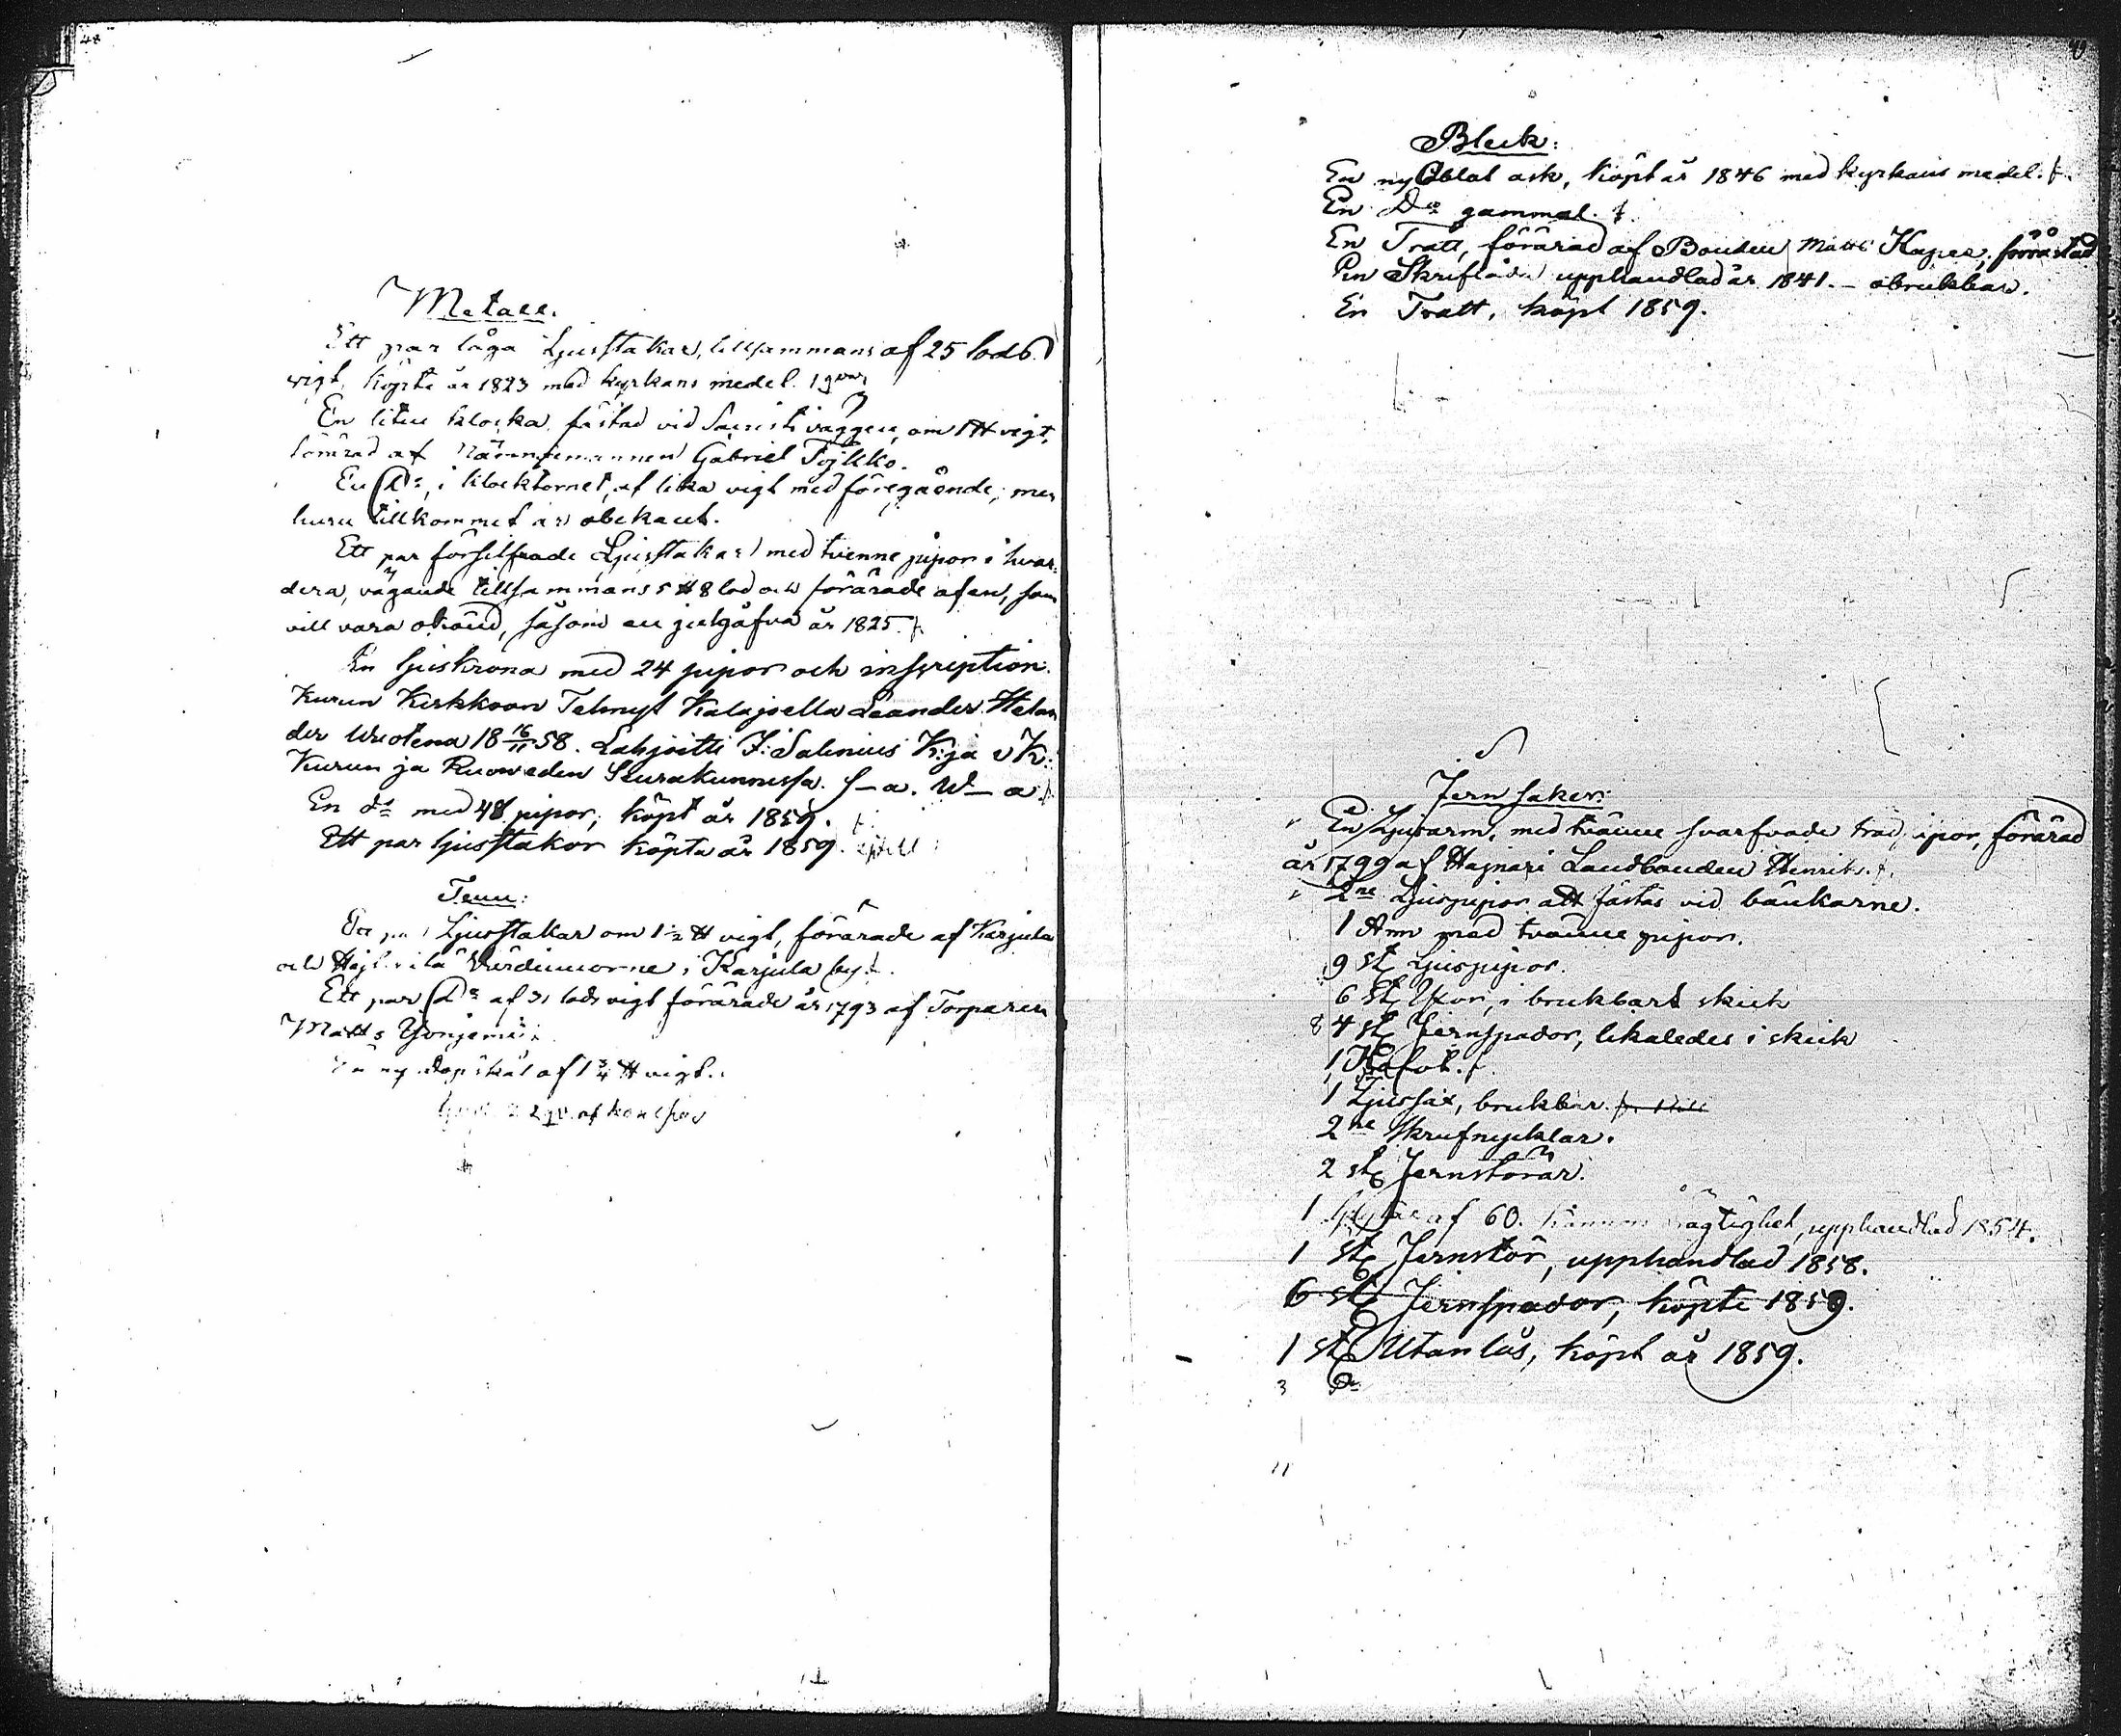 48
Metall.
Ett par låga Ljusstakar, tillsammans af 25 lods
vigt, köpte år 1823 med kyrkans medel. 1 qvar
En liten klocka fästad vid Sacristi väggen, om 1 ℔ vigt,
förärad af Nämndemannen Gabriel Tojkko.
En Do, i klocktornet, af lika vigt med föregående, men
huru tillkommet är obekant.
Ett par försilfrade Ljusstakar med tvenne pipor i hvar-
dera, vägande tillsammans 5 ℔ 8 lod och förärade af en, som
vill vara okänd, såsom en julgåfva år 1825.
En ljuskrona med 24 pipor och inscription.
Kurun Kirkkoon Tehnyt Kalajoella Leander Helan
der Wuotena 18 16/11 58. Lahjoitti J: Salenius K:ja v K:
Kurun ja Ruoweden Seurakunnissa. S–a. W–a
En do med 48 pipor, köpt år 1859.
Ett par ljusstakar köpta år 1859.
Tenn:
Ett par Ljusstakar om 1½ ℔ vigt, förärade af Karjula
och Värdinnorne i Karjula by.
Ett par Do af 31 lods vigt förärade år 1793 af Torparen
Matts
En ny dopskål af 1¾ ℔ vigt.
Bleck:
En ny Oblat ask, köpt år 1846 med kyrkans medel.
En Do gammal.
En Tratt, förärad af Bonden Matts
En Skriflåda upphandlad år 1841. – obrukbar.
En Tratt, köpt 1859.
Jernsaker:
En Ljusarm, med tvänne svarfvade träd pipor, förärad
år 1799 af Hajnari Landbonden Henrik.
2ne Ljuspipor att fästas vid bänkarne.
1 Arm med tvänne pipor.
9 st Ljuspipor.
6 St Yxor, i brukbart skick
8 4 st Jernspador, likaledes i skick
1 Kofot.
1 Ljussax, brukbar.
2ne Skrufnycklar.
2 st Jernstörar.
1 af 60. kannors dragtighet, upphandlad 1854.
1 st Jernstör, upphandlad 1858.
6 st Jernspador, köpte 1859.
1 st Utanlås, köpt år 1859.
3 Do